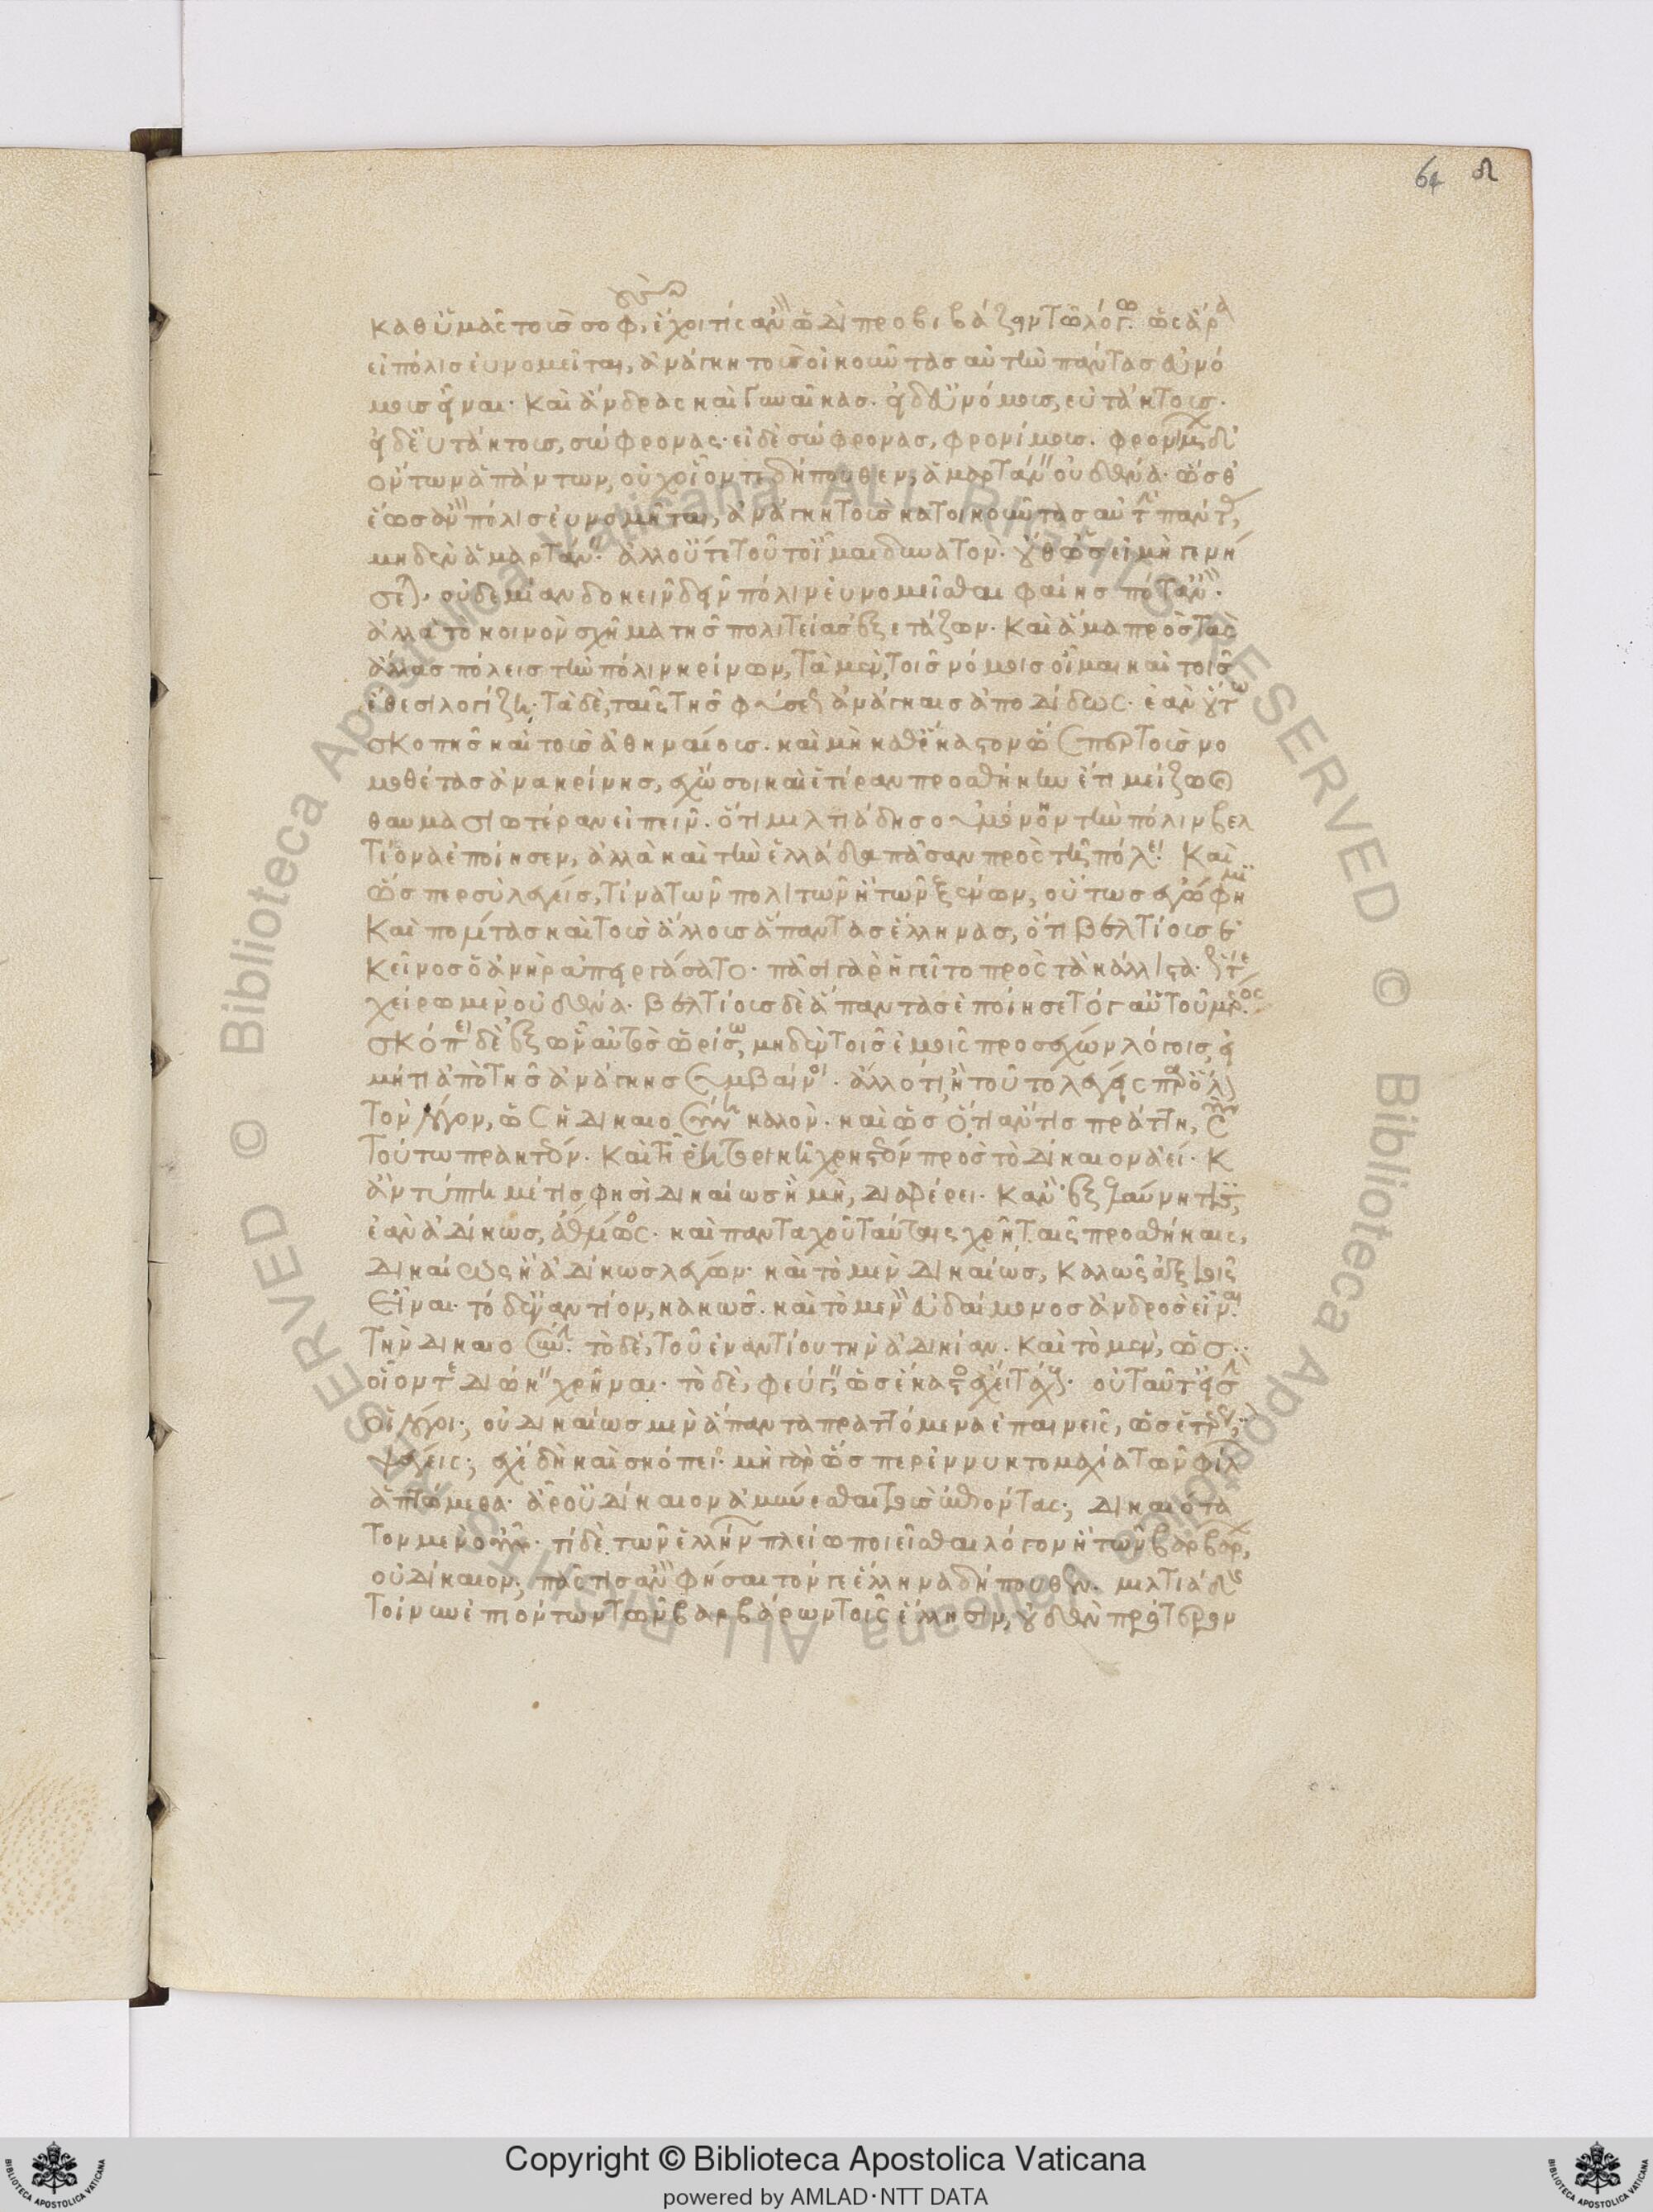 64
καθ' ὑμᾶς τοὺς σοφ, ἔχοι τις ἂν ὧδι προβιβάζειν τῷ λόγῳ. ὡς ἄρα
εἰ πόλις εὐνομεῖται, ἀνάγκη τοὺς οἰκοῦντας αὐτὴν πάντας εὐνό
μους εἶναι. καὶ ἄνδρας καὶ γυναῖκας. εἰ δ' εὐνόμους, εὐτάκτους.
εἰ δ' εὐτάκτους, σώφρονας. εἰ δὲ σώφρονας, φρονίμους. φρονίμους δ'
ὄντων ἁπάντων, οὐχ οἷόν τε δήπουθεν, ἁμαρτάνειν οὐδένα. ὥσθ'
ἕως ἂν πόλις εὐνομῆται, ἀνάγκη τοὺς κατοικοῦντας αὐτὴν πάντας
μηδὲν ἁμαρτάνειν. ἀλλ' οὔτε τοῦτ' οἶμαι δυνατόν. οὔθ' ὡς εἰ μὴ γενή
σεται. οὐδεμίαν δοκεῖν δεῖν πόλιν εὐνομεῖσθαι φαίης ποτ' ἄν.
ἀλλὰ τὸ κοινὸν σχῆμα τῆς πολιτείας ἐξετάζων. καὶ ἅμα πρὸς τὰς
ἄλλας πόλεις τὴν πόλιν κρίνων, τὰ μὲν, τοῖς νόμοις οἶμαι καὶ τοῖς
ἔθεσι λογίζῃ. τὰ δὲ, ταῖς τῆς φύσεως ἀνάγκαις ἀποδίδως. ἐὰν οὕτω
σκοπῇς καὶ τοὺς ἀθηναίους. καὶ μὴ καθ' ἕκαστον ὥσπερ τοὺς νο
μοθέτας ἀνακρίνῃς, ἔχω σοι καὶ ἑτέραν προσθήκην ἔτι μείζω καὶ
θαυμασιωτέραν εἰπεῖν. ὅτι μιλτιάδης οὐ μόνον τὴν πόλιν βελ
τίονα ἐποίησεν, ἀλλὰ καὶ τὴν ἑλλάδα πᾶσαν πρὸς τῇ πόλει. καὶ
ὥσπερ σὺ λέγεις, τίνα τῶν πολιτῶν ἢ τῶν ξένων, οὕτως ἐγώ φημι
καὶ πολίτας καὶ τοὺς ἄλλους ἅπαντας ἕλληνας, ὅτι βελτίους ἐ
κεῖνος ὁ ἀνὴρ ἀπειργάσατο. πᾶσι γὰρ ἡγεῖτο πρὸς τὰ κάλλιστα. ὥστε
χείρω μὲν οὐδένα. βελτίους δὲ ἅπαντας ἐποίησε τό γ' αὑτοῦ μέρος.
σκόπει δὲ ἐξ ὧν αὐτὸς ὥρίσω, μηδὲν τοῖς ἐμοῖς προσσχὼν λόγοις, εἰ
μή τι ἀπὸ τῆς ἀνάγκης συμβαίνοι. ἄλλο τι, ἢ τοῦτο λέγεις παρ' ὅλον
τὸν λόγον, ὡς ἡ δικαιοσύνη καλόν. καὶ ὡς ὅ,τι ἄν τις πράττῃ, σὺν
τούτῳ πρακτέον. καὶ τῇ ῥητορικῇ χρηστέον πρὸς τὸ δίκαιον ἀεί. κ
ἂν τύπτῃ μέ τις φησὶ δικαίως ἢ μὴ, διαφέρει. κἂν ἐξελαύνῃ τις,
ἐὰν ἀδίκως, ἄθλιος. καὶ πανταχοῦ ταύταις χρῇ ταῖς προσθήκαις,
δικαίως ἢ ἀδίκως λέγων. καὶ τὸ μὲν δικαίως, καλῶς ἀξιοῖς
εἶναι. τὸ δ' ἐναντίον, κακῶς. καὶ τὸ μὲν εὐδαίμονος ἀνδρὸς εἶναι
τὴν δικαιοσύνην. τὸ δὲ, τοῦ ἐναντίου τὴν ἀδικίαν. καὶ τὸ μὲν, ὡς
οἷόν τε διώκειν χρῆναι. τὸ δὲ, φεύγειν, ὡς ἕκαστος ἔχει τάχους. οὐ ταῦτ' εἰσὶν
οἱ λόγοι; οὐ δικαίως μὲν ἅπαντα πραττόμενα ἐπαινεῖς, ὡς ἑτέρως,
ψέγεις; ἔχε δὴ καὶ σκόπει. μὴ γὰρ ὥσπερ ἐν νυκτομαχίᾳ τῶν φίλων
ἁπτώμεθα. ἆρ' οὐ δίκαιον ἀμύνεσθαι τοὺς ἐπιόντας; δικαιότα
τον μὲν οὖν. τί δὲ τῶν ἑλλήνων πλείω ποιεῖσθαι λόγον ἢ τῶν βαρβάρων,
οὐ δίκαιον; πᾶς τις ἂν φήσαι τόν γε ἕλληνα δήπουθεν. μιλτιάδης
τοίνυν ἐπιόντων τῶν βαρβάρων τοῖς ἕλλησιν, οὐδὲν πρότερον
Copyright © Biblioteca Apostolica Vaticana
powered by AMLAD·NTT DATA